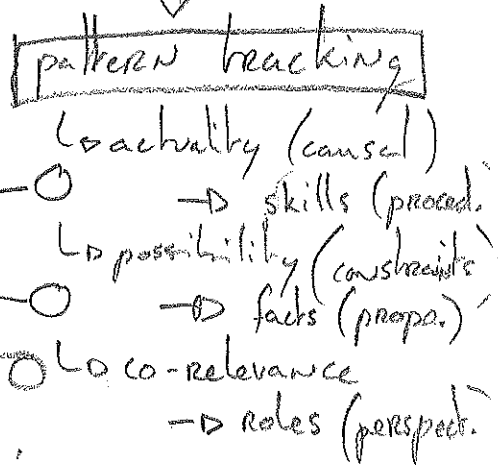 pattern tracking
↳ actuality (causal)
→ skills (proced.
↳ possibility (constraints
→ facts (propo.)
↳ co-relevance
→ roles (perspect.